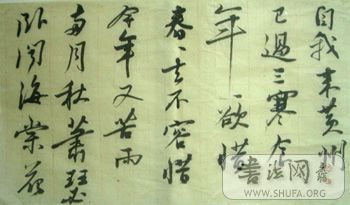 自我来黄州
已過三寒食
年々欲惜
春々去不容惜
今年又苦雨
兩月秋蕭瑟
卧聞海棠花
書法网
WWW.SHUFA.ORG